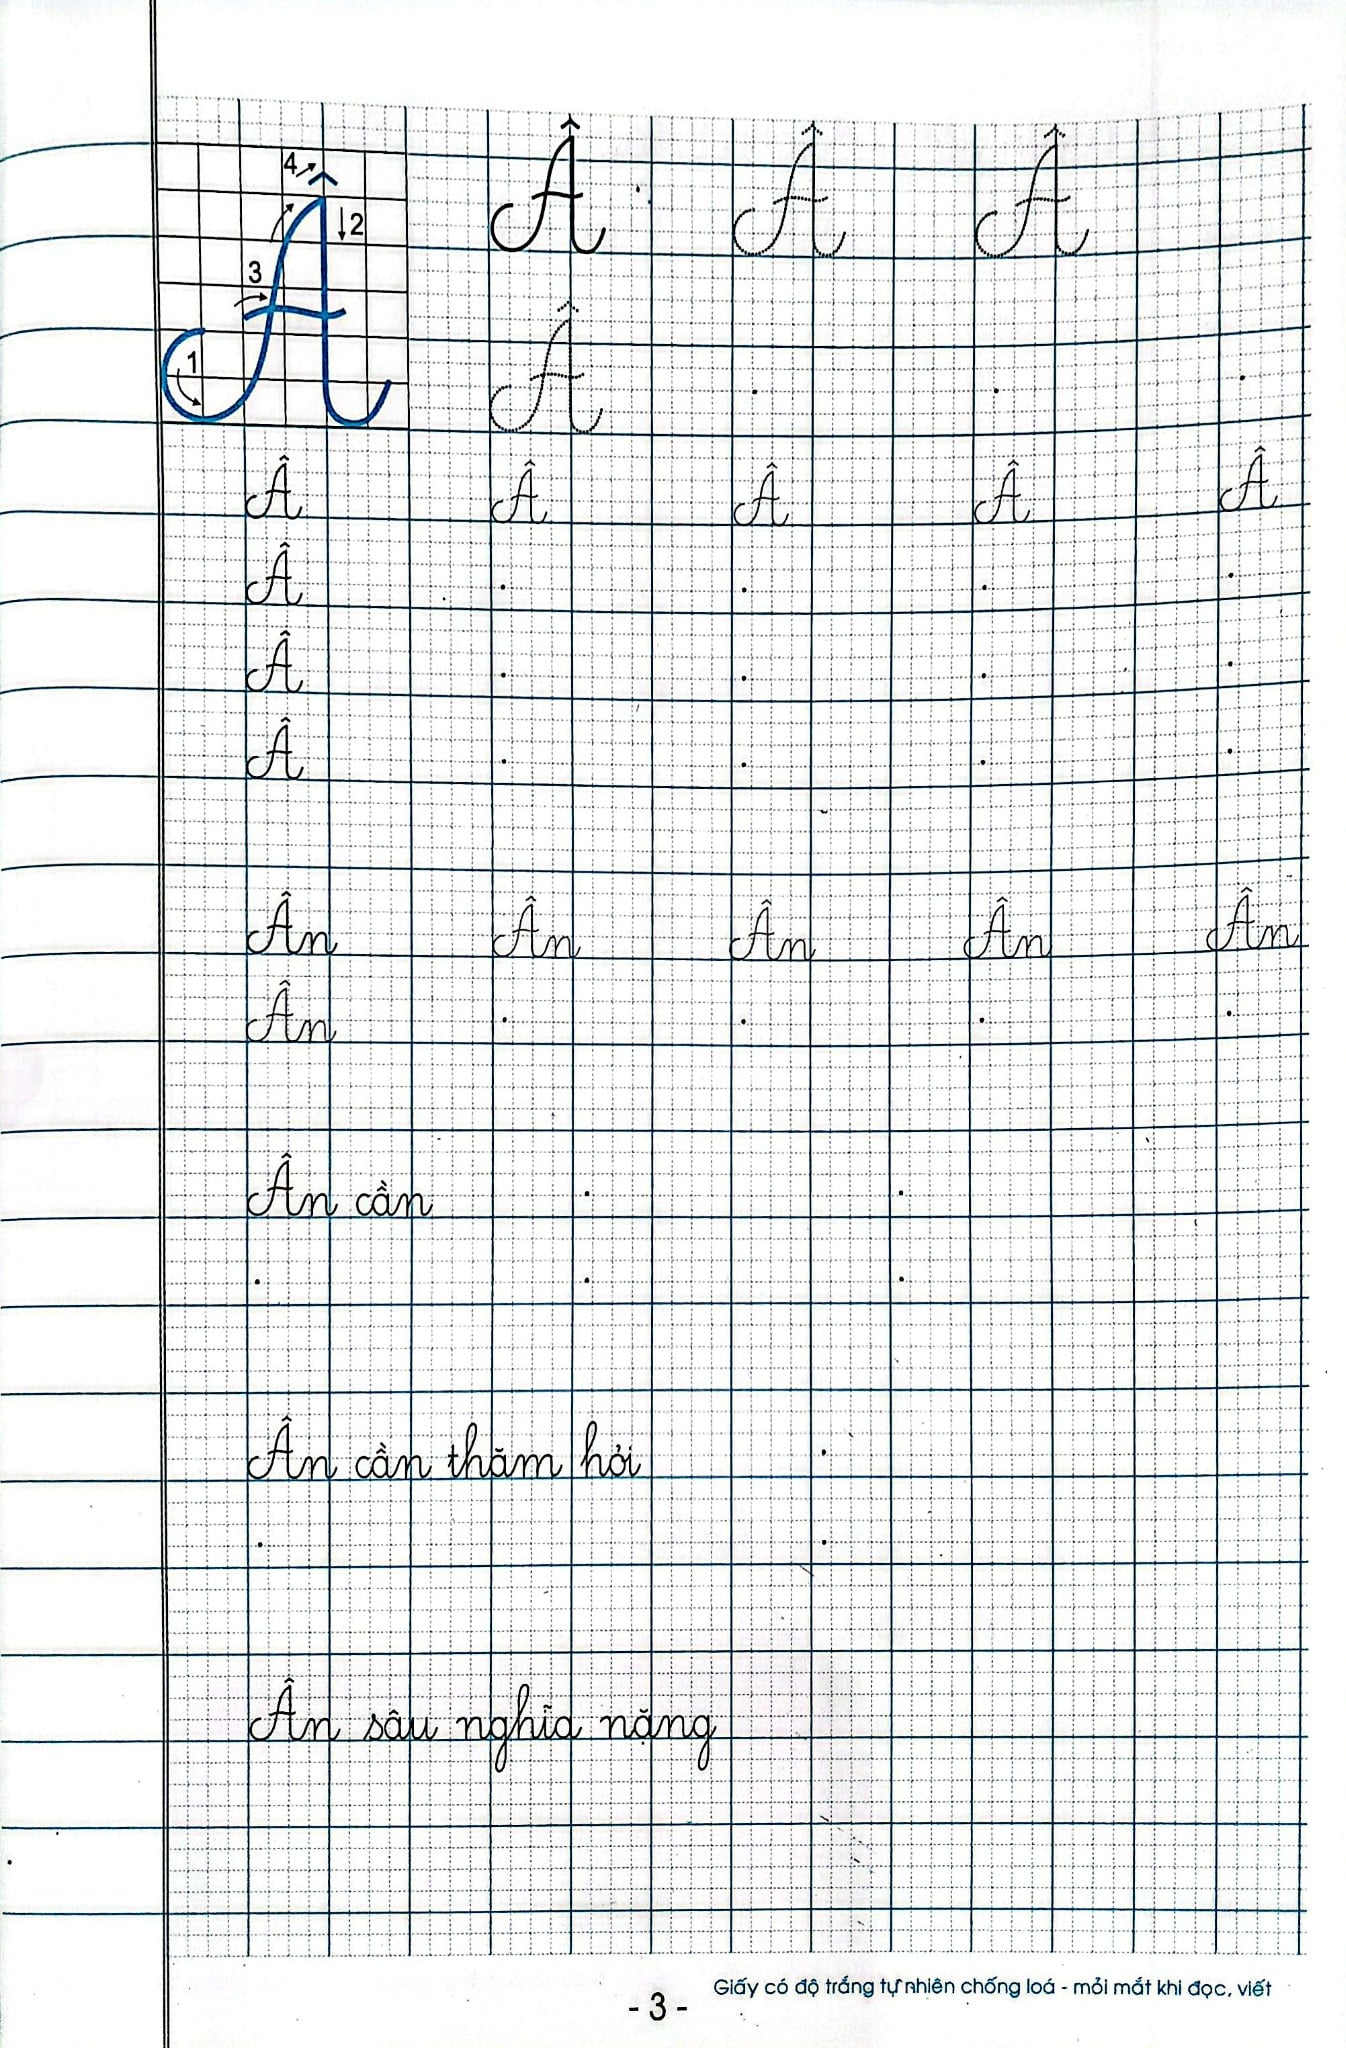 4
2
3
1
Â Â Â
Â
Â Â Â Â Â
Â
Â
Â
Ân Ân Ân Ân Ân
Ân
Ân cần
Ân cần thăm hỏi
Ân sâu nghĩa nặng
Giấy có độ trắng tự nhiên chống loá - mỏi mắt khi đọc, viết
- 3 -